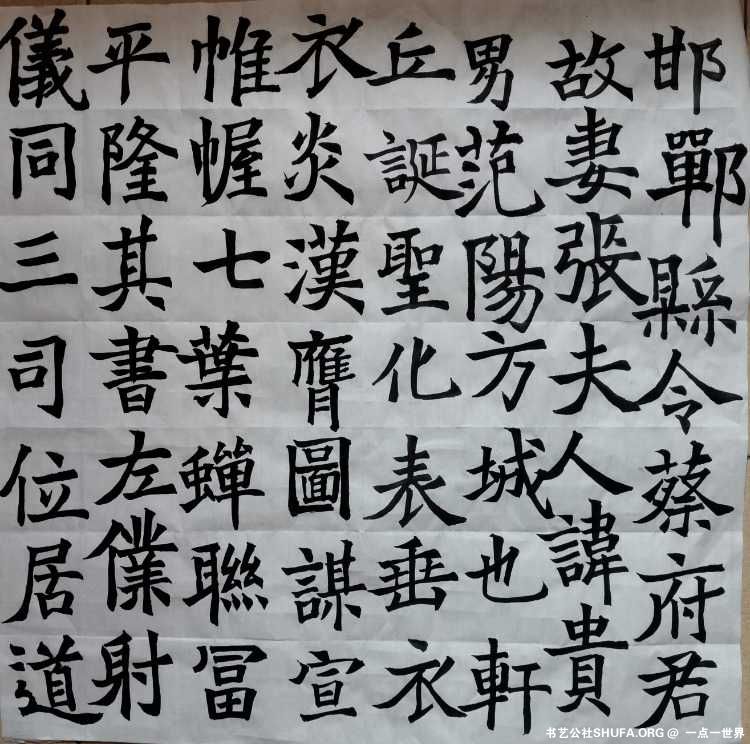 邯鄲縣令蔡府君
故妻張夫人諱貴
男范陽方城也軒
丘誕聖化表垂衣
衣炎漢膺圖謀宣
帷幄七葉蟬聯冨
平隆其書左僕射
儀同三司位居道
书艺公社SHUFA.ORG @ 一点一世界